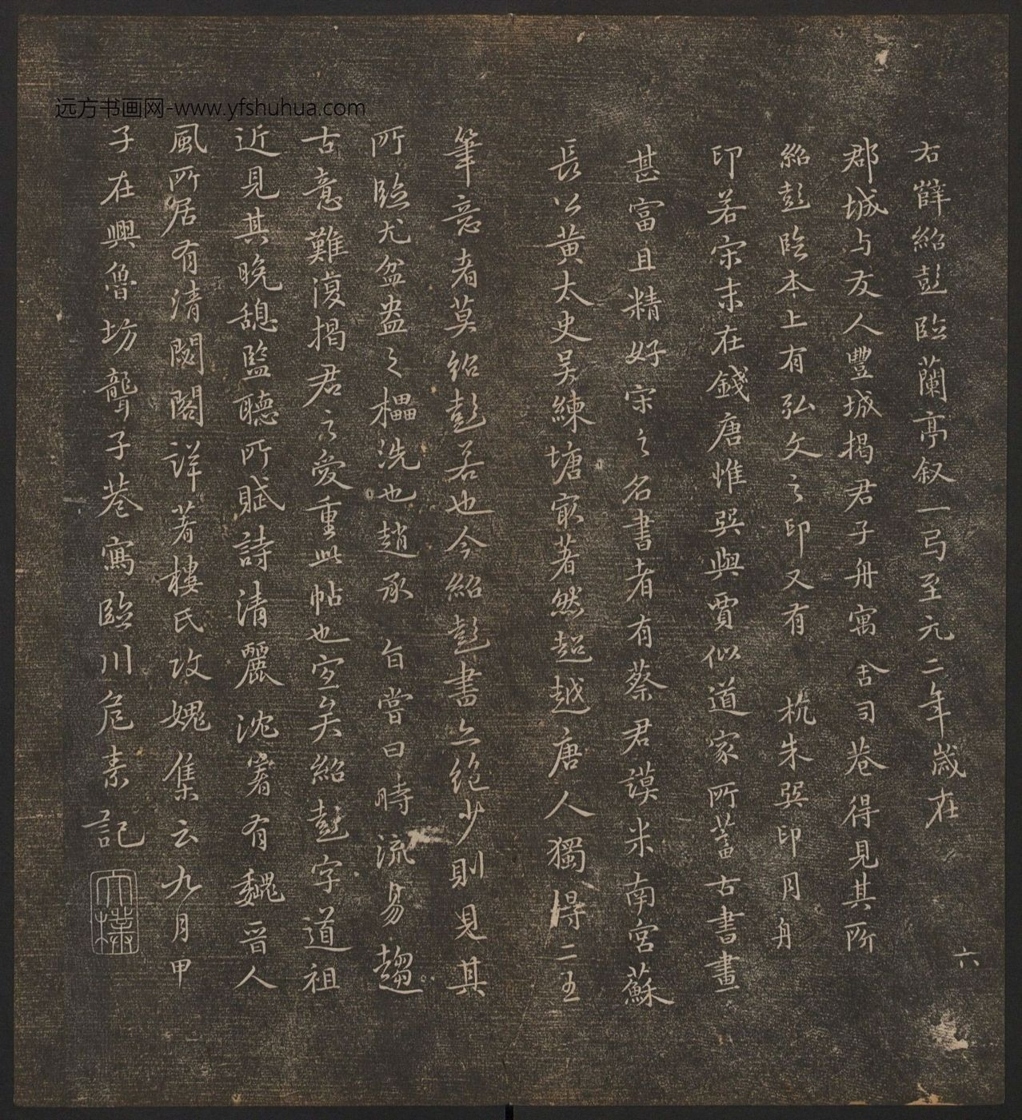 远方书画网-www.yfshuhua.com
右薛紹彭臨蘭亭叙一弓至元二年歲在
郡城与友人豐城揭君子舟寓舍司巷得見其所
紹彭臨本上有弘文之印又有杭朱巽印月舟
印若宋末在錢唐惟巽與賈似道家所蓄古書畫
甚富且精好宋之名書者有蔡君謨米南宮蘇
長公黃太史吳練塘冣著然超越唐人獨得二王
筆意者莫紹彭若也今紹彭書亦絶少則見其
所臨尤盆盎之櫑洗也趙承旨嘗曰時流易趨
古意難復揭君之愛重此帖也宜矣紹彭字道祖
近見其晚憇監聽所賦詩清麗沈著有魏晉人
風所居有清閟閣詳著樓氏攻媿集云九月甲
子在興魯坊聾子巷寓臨川危素記
太樸
六